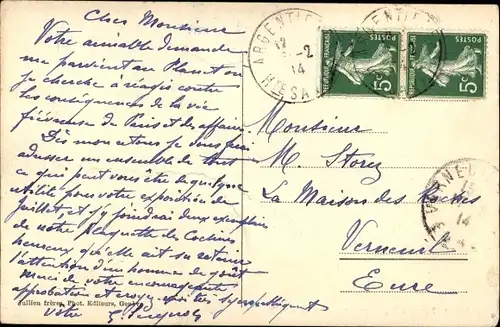 Cher Monsieur
Votre aimable demande
me parvient au Planet où
je cherche à réagir contre
les conséquences de la vie
fiévreuse de Paris et des affaires.
Dès mon retour je vous ferai
adresser un ensemble de tout
ce qui peut vous être de quelque
utilité pour votre exposition de
juillet, et j'y joindrai deux exemplaires
de notre plaquette des Cochins
heureux qu'elle ait su retenir
l'attention d'un homme de goût
Merci de votre encouragement
approbation et croyez moi très sympathiquement
Votre
Jullien frères, Phot. Editeurs, Genève
ARGENTIE
12
-2
14
HTE SA
REPUBLIQUE FRANÇAISE
POSTES
5c
REPUBLIQUE FRANÇAISE
POSTES
5c
Monsieur
M. Storez
La Maison des Roches
Verneuil
Eure
VERNEU
14